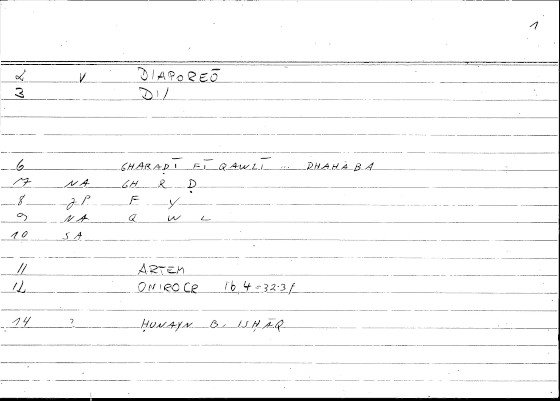 1
2 V DIAPOREŌ
3 DI/
6 GHARAḌĪ FĪ QAWLĪ ... DHAHABA
7 NA GH R Ḍ
8 JP F Y
9 NA Q W L
10 SA
11 ARTEM
12 ONIROCR 16,4=32.31
14 ? ḤUNAYN B. ISḤĀQ